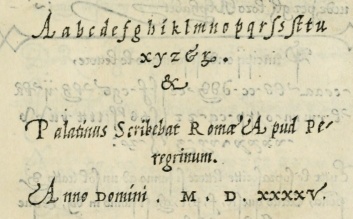 A a b c d e f g h i k l m n o p q r s ſ ſt t u
x y z & ꝝ .
&
Palatinus Scribebat Romæ Apud Pe-
regrinum.
Anno Domini . M . D . xxxxv.